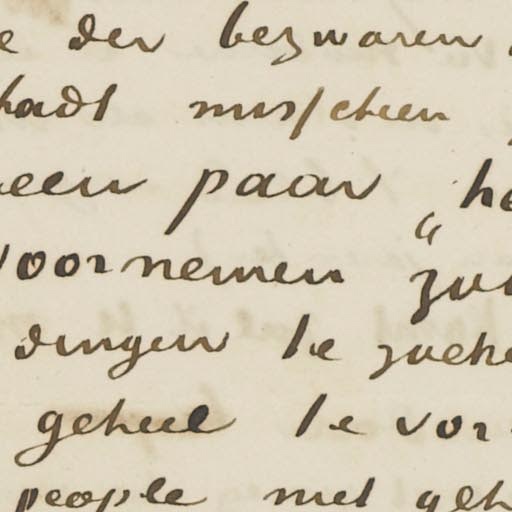 e der bezwaren
hadt misschien
een paar he
voornemen „zul
dingen te zoeke
geheel te vor
people met geh